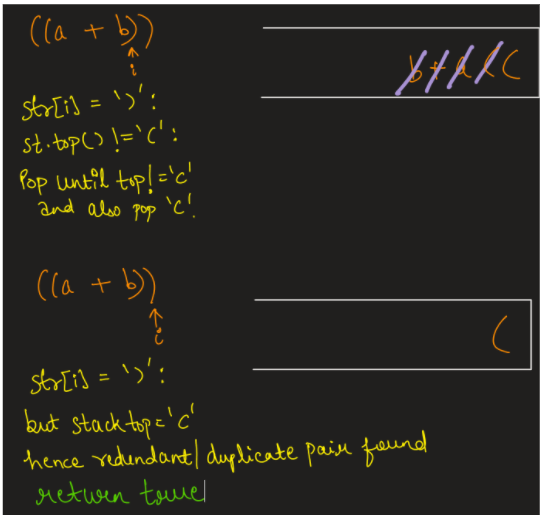 ((a + b))
b + a ( (
i
str[i] = ')':
st.top() != '(':
Pop until top != '('
and also pop '('.
((a + b))
(
i
str[i] = ')':
but stack top = '('
hence redundant/duplicate pair found
return true